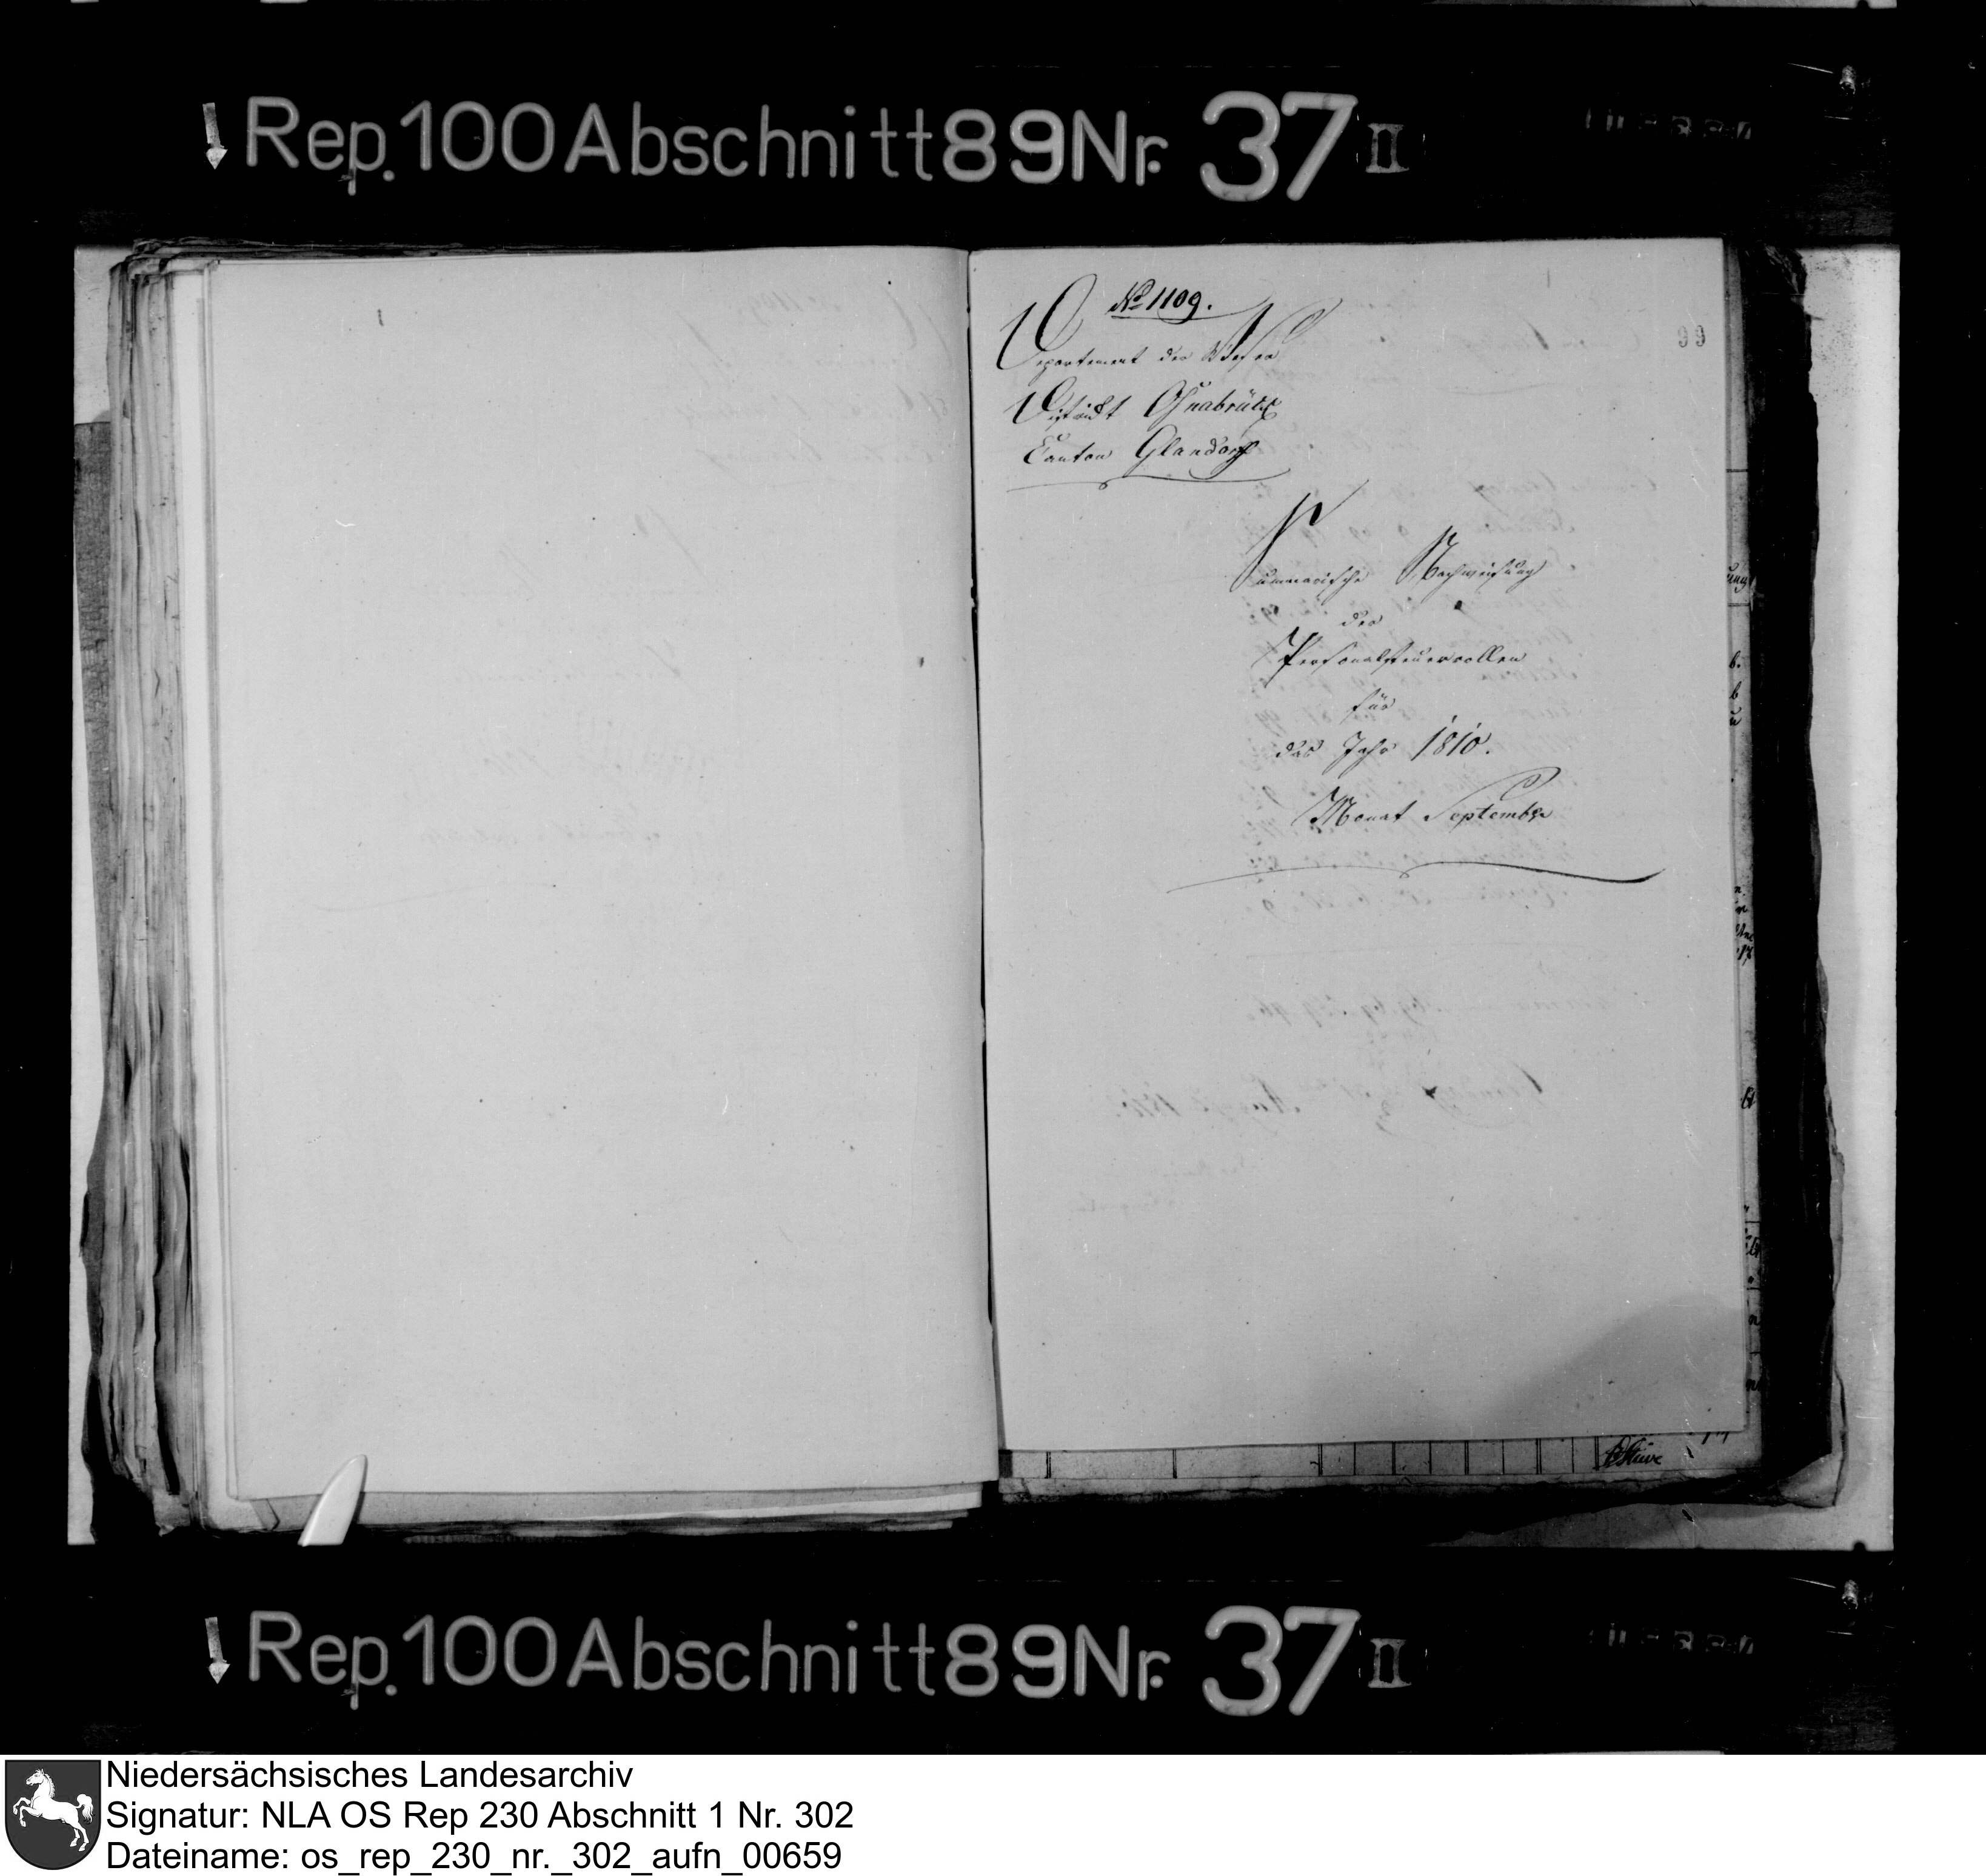 Rep. 100 Abschnitt 89 Nr. 37 II
No 1109.
99
Departement der Weser
District Osnabrück
Canton Glandorf
Summarische Nachweisung
der
Personalsteuerrollen
für
das Jahr 1810.
Monat September
Rep. 100 Abschnitt 89 Nr. 37 II
Niedersächsisches Landesarchiv
Signatur: NLA OS Rep 230 Abschnitt 1 Nr. 302
Dateiname: os_rep_230_nr._302_aufn_00659